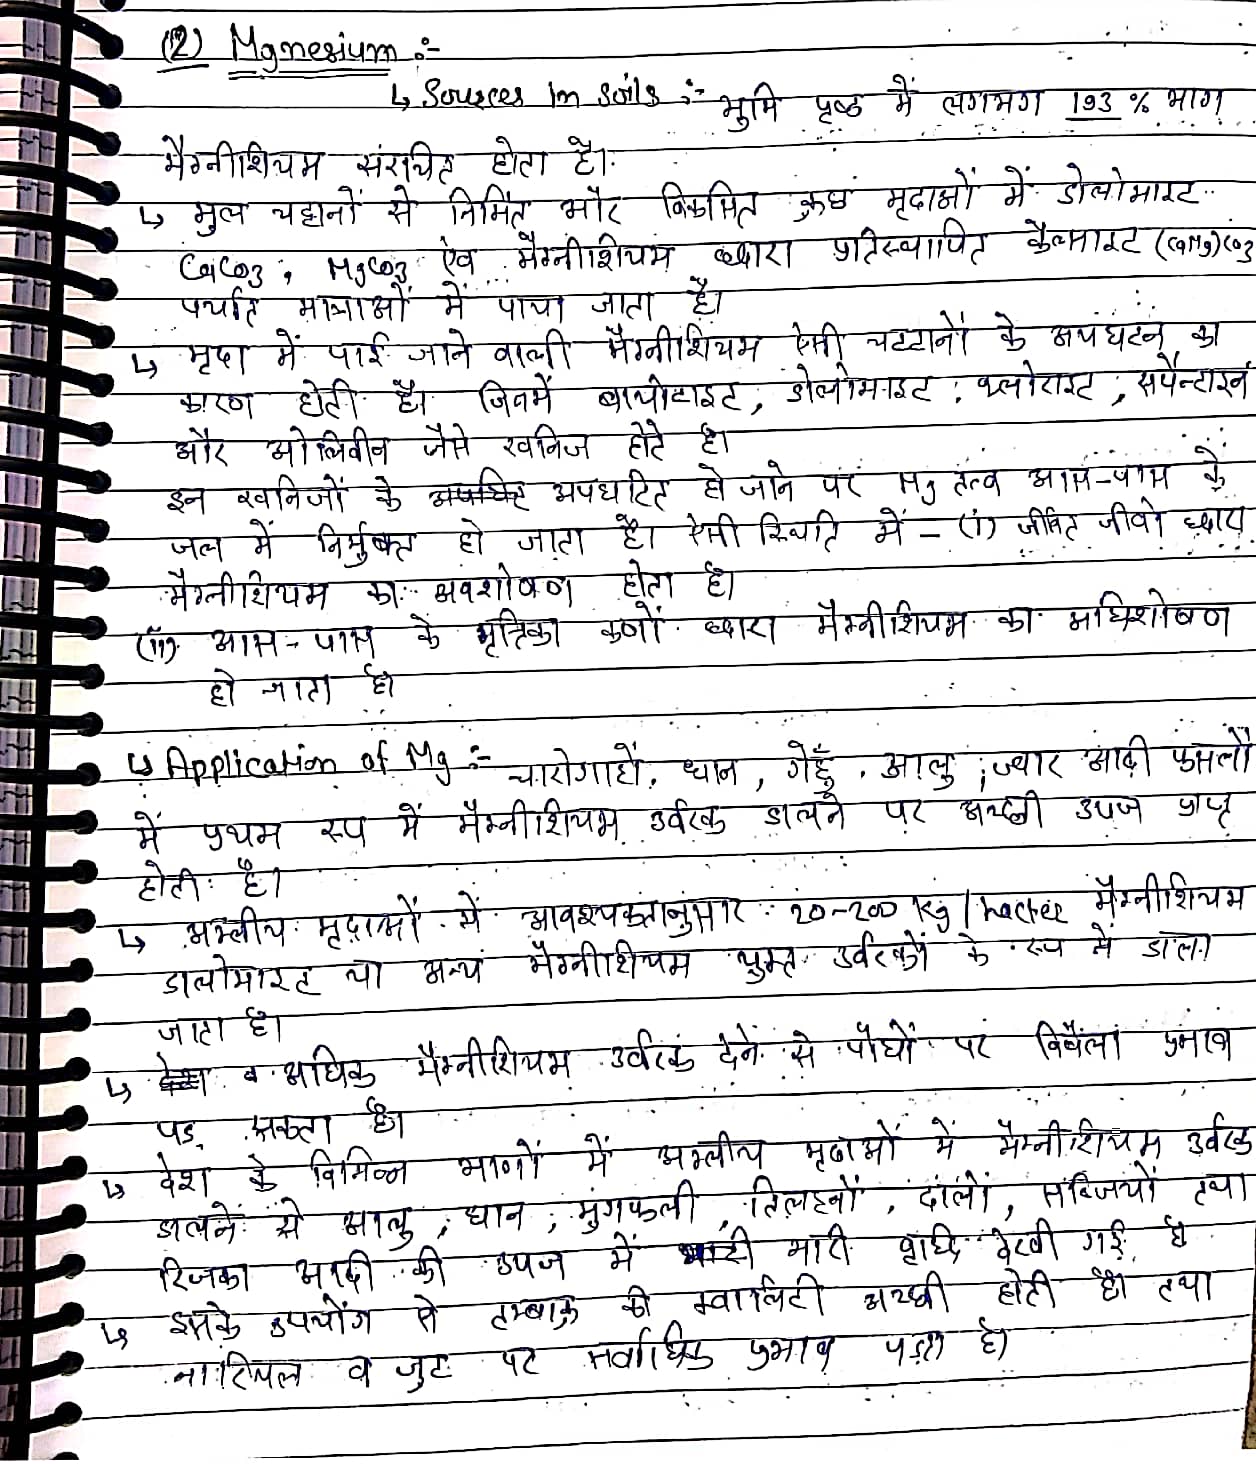 (2) Mgnesium :-
↳ Sources in soils :- भुमि पृष्ठ में लगभग 193 % भाग
मैग्नीशियम संरचित होता है।
↳ मुल चट्टानों से निर्मित और विकसित कुछ मृदाओं में डोलोमाइट
CaCo3, MgCo3 एंव मैग्नीशियम ध्दारा प्रतिस्थापित कैल्साइट (CaMg)Co3
पर्याप्त मात्राओं में पाया जाता है।
↳ मृदा में पाई जाने वाली मैग्नीशियम ऐसी चटटानों के अपघटन का
कारण होती है। जिनमें बायोटाइट, डोलोमाइट, क्लोराइट, सर्पेन्टाइन
और ओलिवीन जैसे खनिज होते है।
इन खनिजों के अपघटित हो जाने पर Mg तत्व आस-पास के
जल में निर्मुक्त हो जाता है। ऐसी स्थिति में - (i) जीवित जीवो ध्दारा
मैग्नीशियम का अवशोषण होता है।
(ii) आस-पास के मृत्तिका कणों ध्दारा मैग्नीशियम का अधिशोषण
हो जाता है।
↳ Application of Mg :- चारोगाहों, धान, गेहूँ, आलु, ज्वार आदी फसलों
में प्रथम रुप में मैग्नीशियम उर्वरक डालने पर अच्छी उपज प्राप्त
होती है।
↳ अम्लीय मृदाओं में आवश्यकतानुसार 20-200 Kg / hactee मैग्नीशियम
डालोमाइट या अन्य मैग्नीशियम युक्त उर्वरकों के रुप में डाला
जाता है।
↳ अधिक मैग्नीशियम उर्वरक देने से पौधों पर विषैला प्रभाव
पड़ सकता है।
↳ देश के विभिन्न भागों में अम्लीय मृदाओं में मैग्नीशियम उर्वरक
डालनें से आलु, धान, मुंगफली, तिलहनों, दालों, सब्जियों तथा
रिजका आदी की उपज में भारी वृध्दि देखी गई है
↳ इसके उपयोग से तम्बाकु की क्वालिटी अच्छी होती है। तथा
नारियल व जुट पर सर्वाधिक प्रभाव पड़ता है।